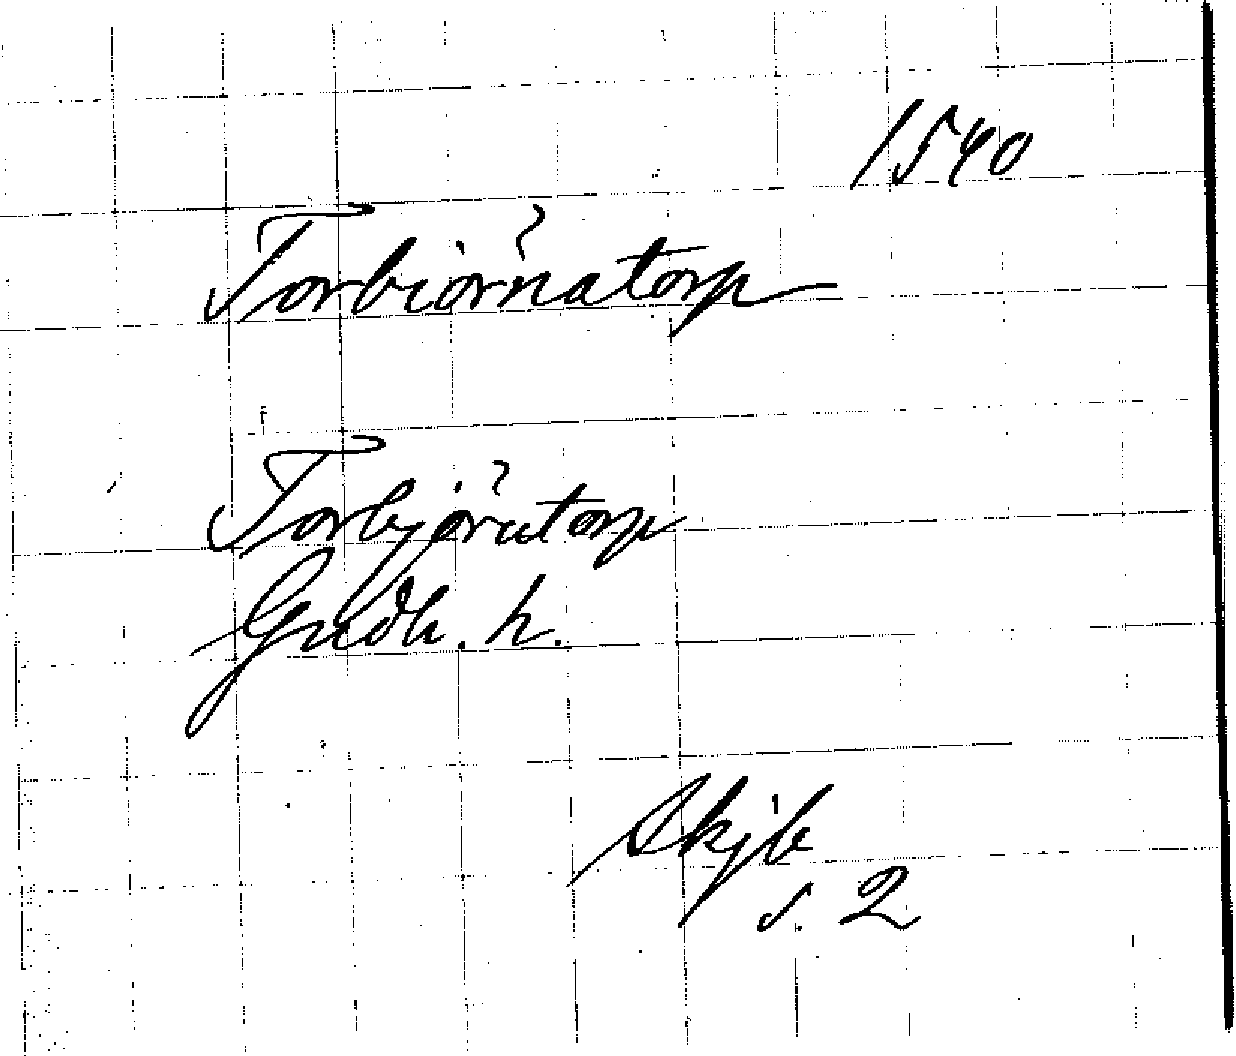 1540
Torbiörnatorp
Torbjörntorp
Gudh. h.
Skjb
s. 2